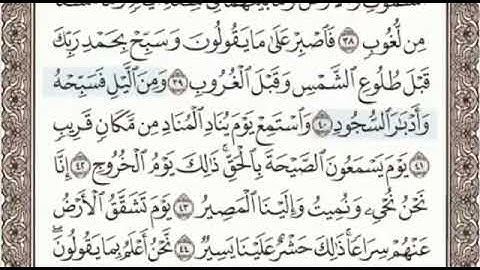 مِن لُّغُوبٍ ٣٨ فَٱصۡبِرۡ عَلَىٰ مَا يَقُولُونَ وَسَبِّحۡ بِحَمۡدِ رَبِّكَ
قَبۡلَ طُلُوعِ ٱلشَّمۡسِ وَقَبۡلَ ٱلۡغُرُوبِ ٣٩ وَمِنَ ٱلَّيۡلِ فَسَبِّحۡهُ
وَأَدۡبَٰرَ ٱلسُّجُودِ ٤٠ وَٱسۡتَمِعۡ يَوۡمَ يُنَادِ ٱلۡمُنَادِ مِن مَّكَانٖ قَرِيبٖ
٤١ يَوۡمَ يَسۡمَعُونَ ٱلصَّيۡحَةَ بِٱلۡحَقِّۚ ذَٰلِكَ يَوۡمُ ٱلۡخُرُوجِ ٤٢ إِنَّا
نَحۡنُ نُحۡيِۦ وَنُمِيتُ وَإِلَيۡنَا ٱلۡمَصِيرُ ٤٣ يَوۡمَ تَشَقَّقُ ٱلۡأَرۡضُ
عَنۡهُمۡ سِرَاعٗاۚ ذَٰلِكَ حَشۡرٌ عَلَيۡنَا يَسِيرٞ ٤٤ نَّحۡنُ أَعۡلَمُ بِمَا يَقُولُونَۖ